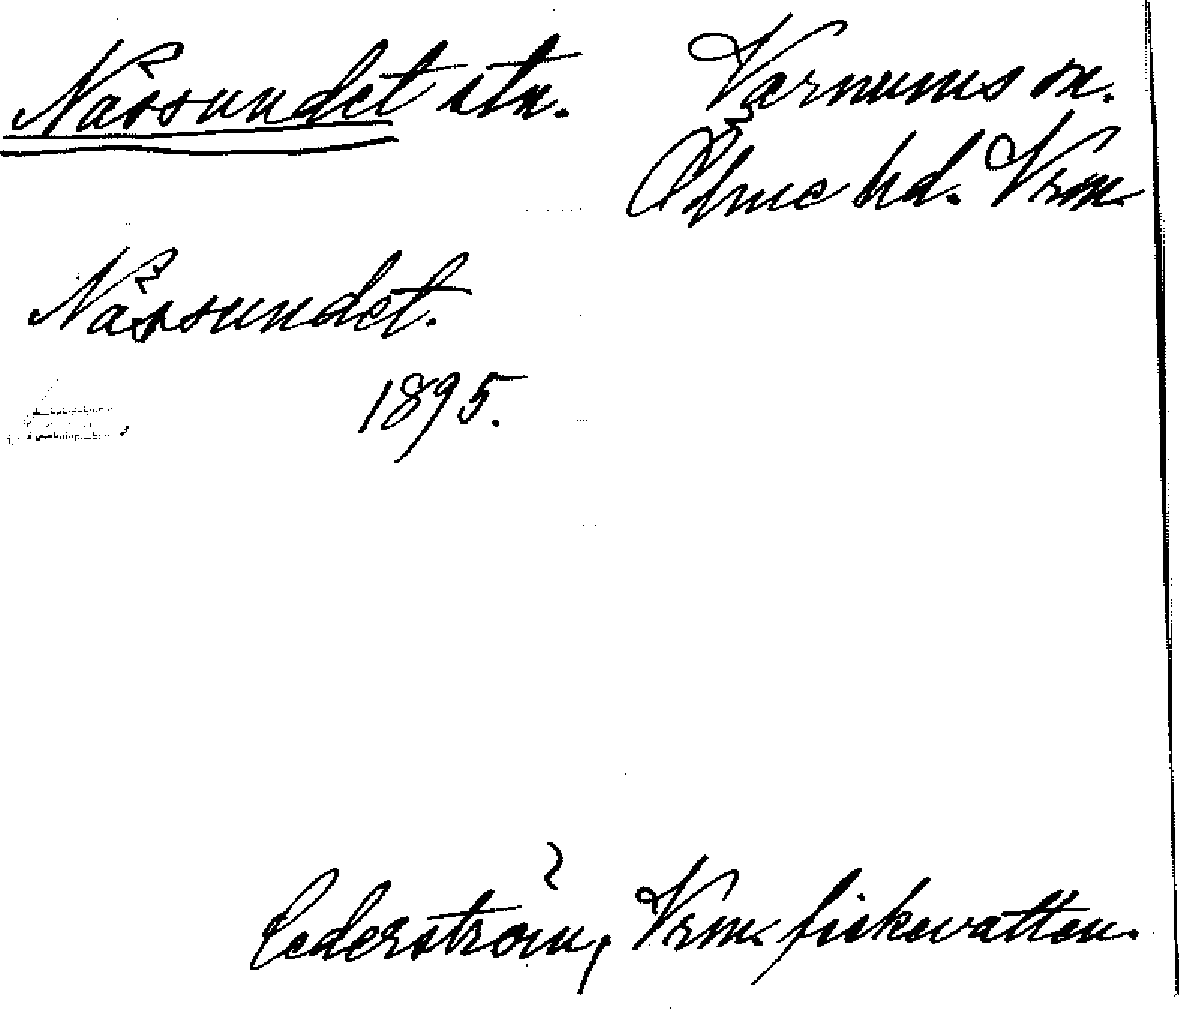 Nässundet stn. Varnums sn.
Ölme hd. Vrm.
Nässundet.
1895.
Cederström, Vrm. fiskevatten.